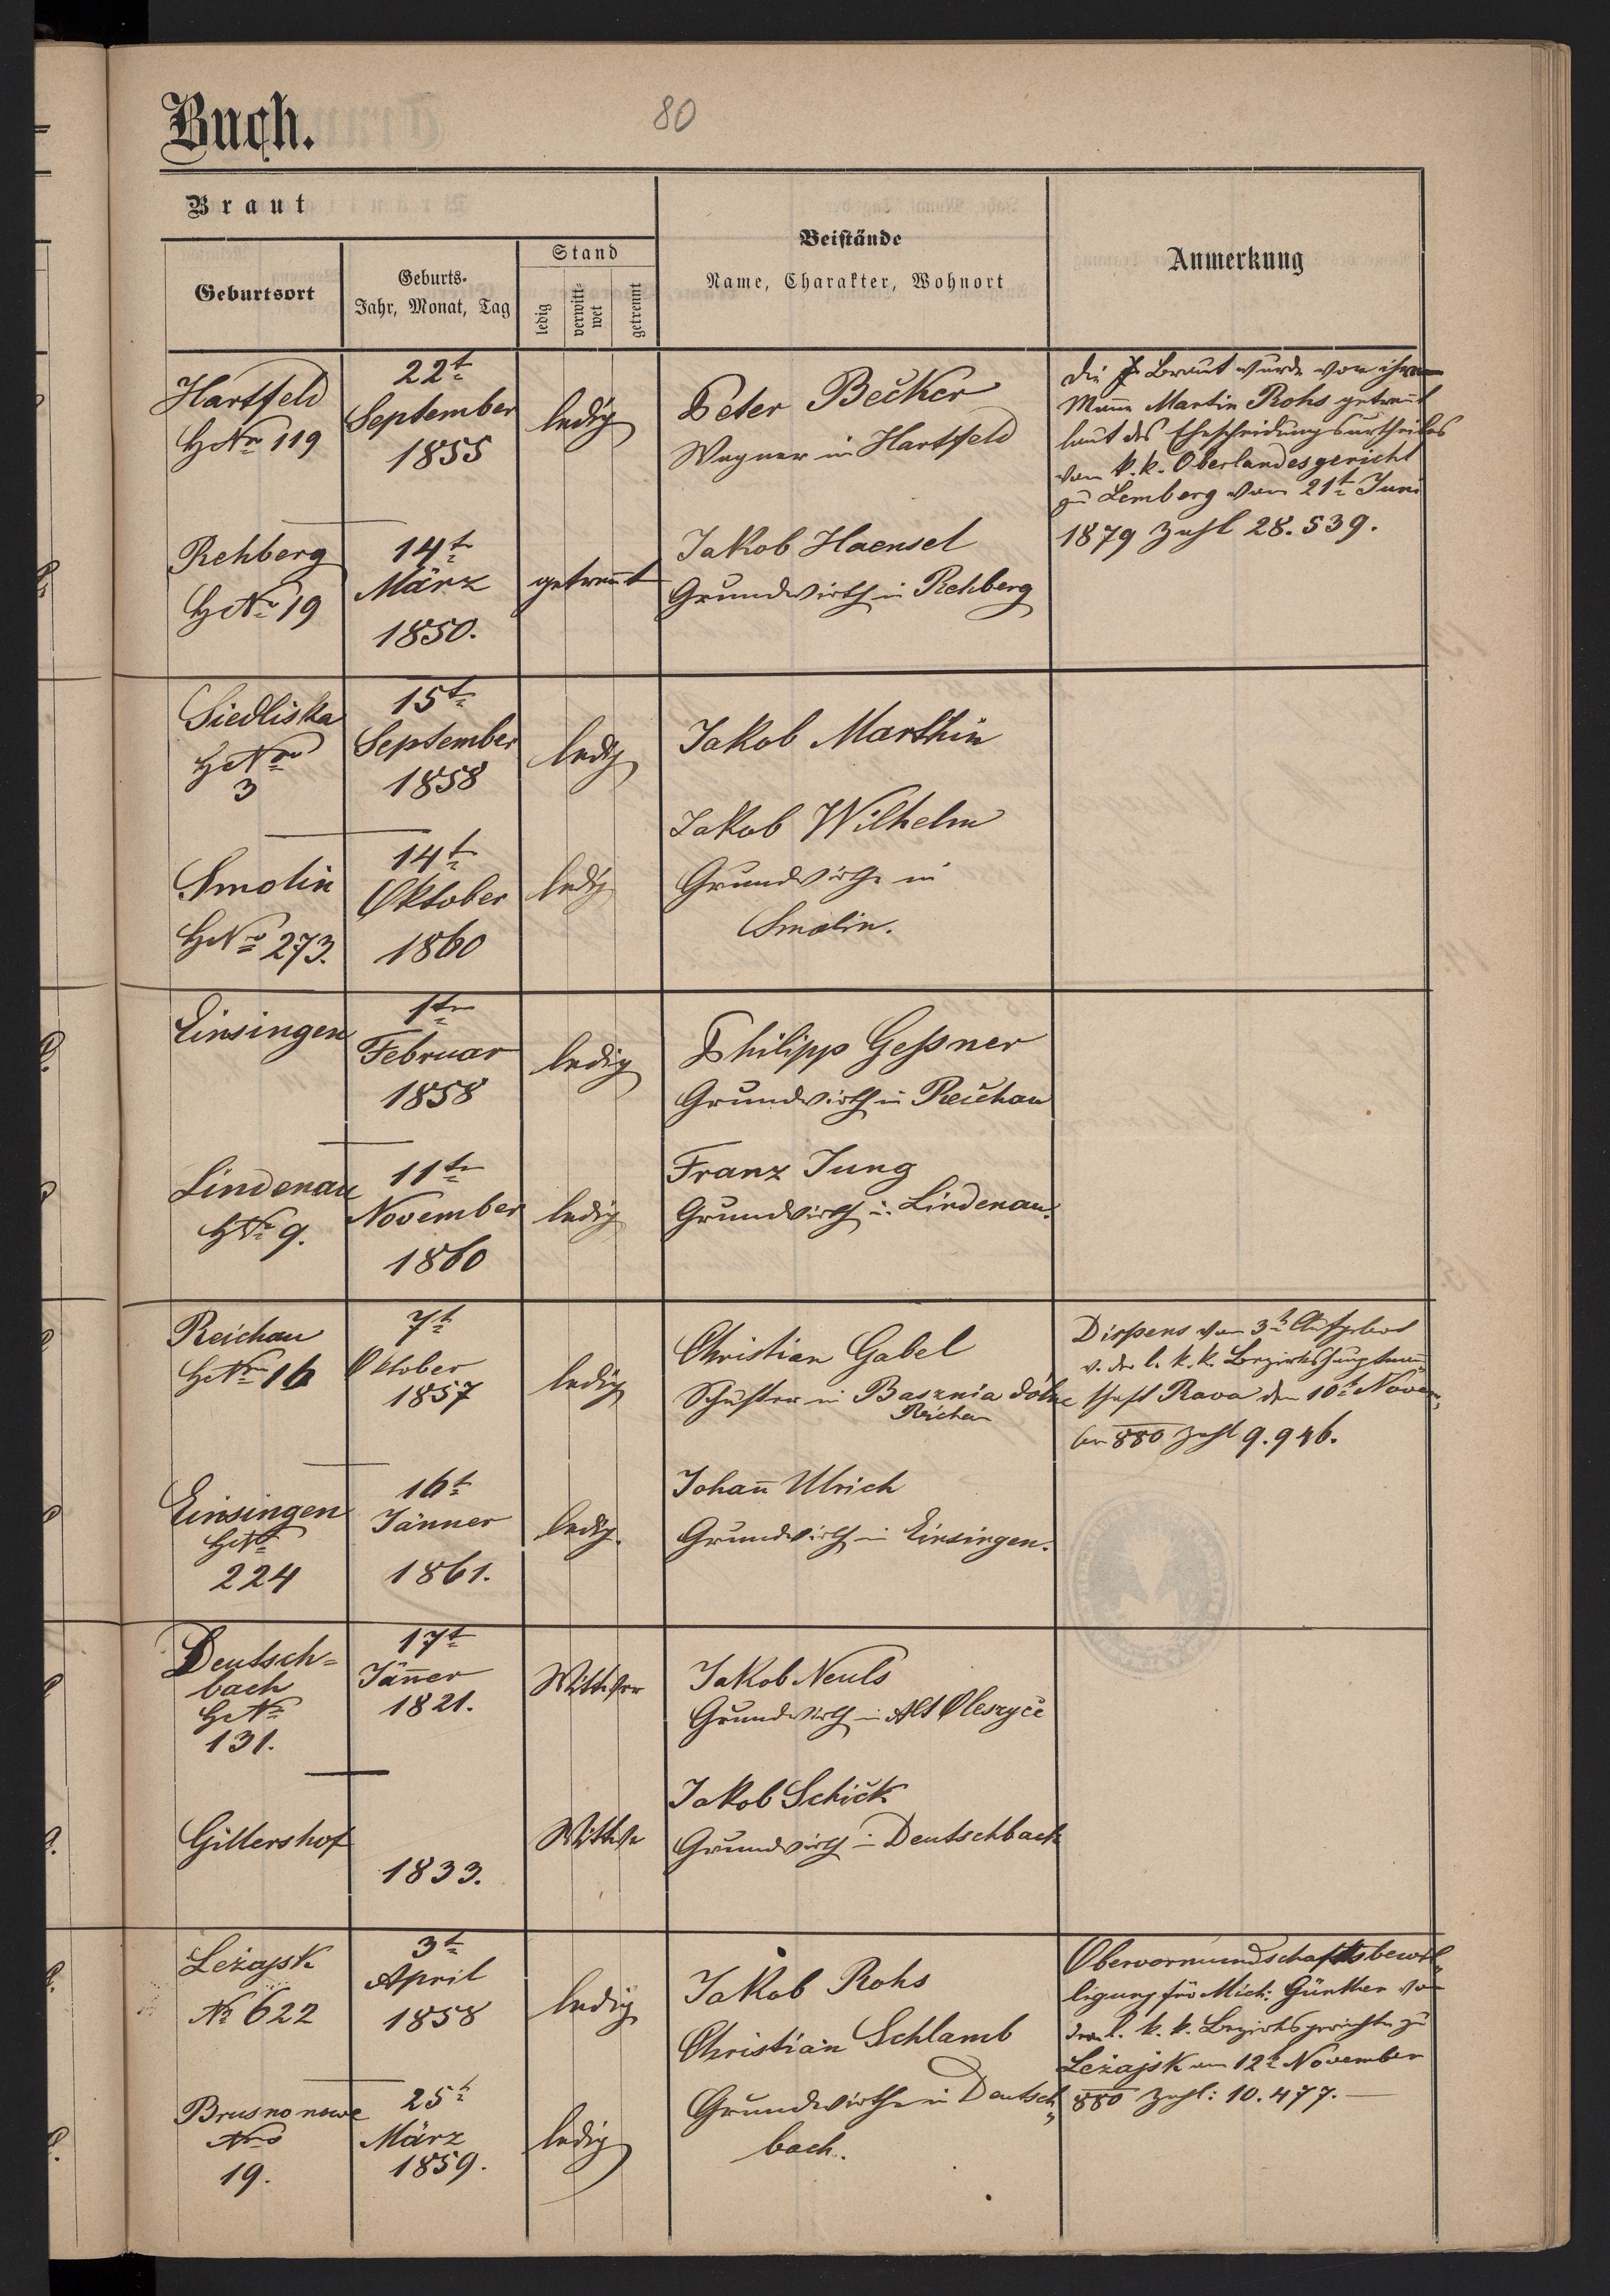 Buch.
80
Braut
Geburtsort
Geburts-
Jahr, Monat, Tag
Stand
ledig
verwitt-
wet
getrennt
Beistände
Name, Charakter, Wohnort
Anmerkung
Hartfeld
HNro 119
22t
September
1855
ledig
Peter Becker
Wagner in Hartfeld
Die Braut wurde von ihrem
Manne Martin Rohs getrennt
laut des Ehescheidungsurtheiles
vom k. k. Oberlandesgericht
zu Lemberg vom 21t Juni
1879 Zahl 28.539.
Rehberg
HNo 19
14t
März
1850.
getrennt
Jakob Haensel
Grundwirth in Rehberg
Siedliska
HNro
3
15t
September
1858
ledig
Jakob Marthin
Smolin
HNro 273.
14t
Oktober
1860
ledig
Jakob Wilhelm
Grundwirthe in
Smolin.
Einsingen
1tn
Februar
1858
ledig
Philipp Geßner
Grundwirth in Reichau
Lindenau
HNo 9.
11tn
November
1860
ledig
Franz Jung
Grundwirth in Lindenau.
Reichau
HNro 16
7t
Oktober
1857
ledig
Christian Gabel
Schuster in Basznia dolne
Reichau
Dispens vom 3t Aufgebot
v. der l. k. k. Bezirkshauptmann
schaft Rava den 10t Novem„
ber 880 Zahl 9.946.
Einsingen
HNo
224
16t
Jänner
1861.
ledig.
Johan̄ Ulrich
Grundwirth in Einsingen.
Deutsch=
bach
HNo
131.
17t
Jän̄er
1821.
Wittwer
Jakob Neuls
Grundwirth in Alt Oleszyce
Gillershof
1833.
Wittwe
Jakob Schick
Grundwirth in Deutschbach
Leżajsk
No 622
3t
April
1858
ledig
Jakob Rohs
Christian Schlamb
Grundwirthe in Deutsch„
bach.
Obervormundschaftsbewil„
ligung für Mich: Günther von
dem l. k. k. Bezirksgerichte zu
Leżajsk am 12t November
880 Zahl: 10.477.—
Brusno nowe
Nro
19.
25t
März
1859.
ledig